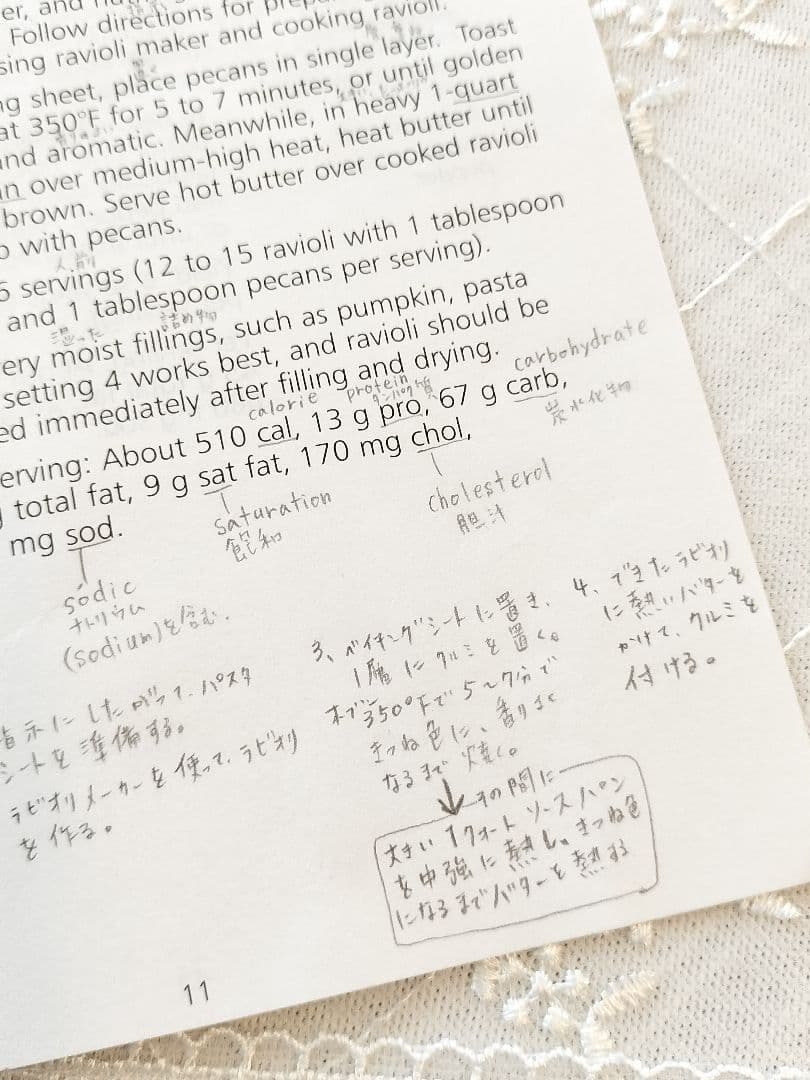 er, and
Follow directions for
sing ravioli maker and cooking ravioli.
ng sheet, place pecans in single layer. Toast
at 350°F for 5 to 7 minutes, or until golden
nd aromatic. Meanwhile, in heavy 1-quart
n over medium-high heat, heat butter until
brown. Serve hot butter over cooked ravioli
with pecans.
servings (12 to 15 ravioli with 1 tablespoon
and 1 tablespoon pecans per serving).
湿った 詰め物
ery moist fillings, such as pumpkin, pasta
setting 4 works best, and ravioli should be
ed immediately after filling and drying.
calorie protein タンパク質 carbohydrate
erving: About 510 cal, 13 g pro, 67 g carb,
炭水化物
total fat, 9 g sat fat, 170 mg chol,
saturation cholesterol
飽和 胆汁
mg sod.
sodic
ナトリウム
(sodium)を含む.
指示にしたがって、パスタ
シートを準備する。
ラビオリメーカーを使って、ラビオリ
を作る。
3、ベイキングシートに置き、
1層にクルミを置く。
オブン350°Fで5〜7分で
きつね色に、香りよく
なるまで焼く。
その間に
大きい1クォートソースパン
を中強に熱し、きつね色
になるまでバターを熱する
4、できたラビオリ
に熱いバターを
かけて、クルミを
付ける。
11